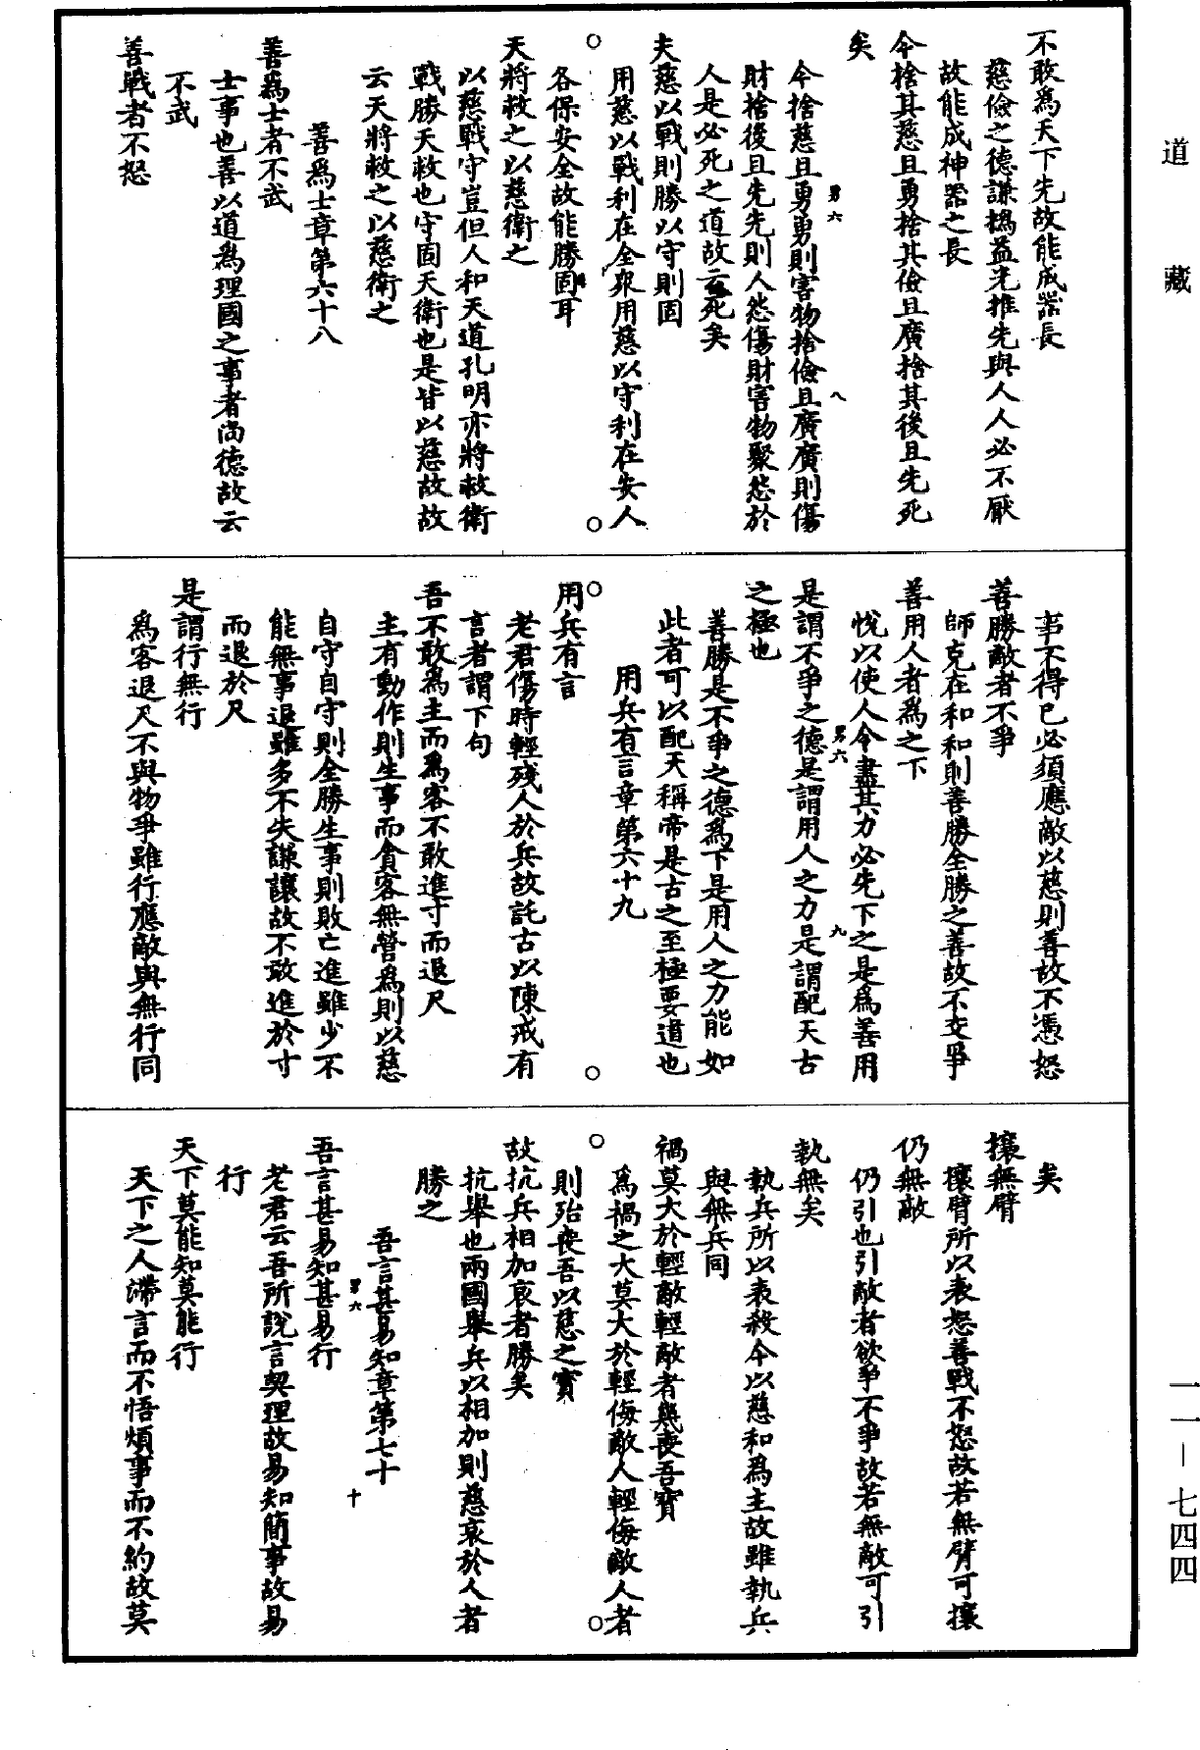 道藏
不敢為天下先故能成器長
慈儉之德謙撝益光推先與人人必不厭
故能成神器之長
今捨其慈且勇捨其儉且廣捨其後且先死
矣
今捨慈且勇勇則害物捨儉且廣廣則傷
財捨後且先先則人怨傷財害物聚怨於
人是必死之道故云死矣
夫慈以戰則勝以守則固
用慈以戰利在全眾用慈以守利在安人
各保安全故能勝固耳
天將救之以慈衛之
以慈戰守豈但人和天道孔明亦將救衛
戰勝天救也守固天衛也是皆以慈故故
云天將救之以慈衛之
善為士章第六十八
善為士者不武
士事也善以道為理國之事者尚德故云
不武
善戰者不怒
事不得已必須應敵以慈則善故不憑怒
善勝敵者不爭
師克在和和則善勝全勝之善故不交爭
善用人者為之下
悅以使人令盡其力必先下之是為善用
是謂不爭之德是謂用人之力是謂配天古
之極也
善勝是不爭之德為下是用人之力能如
此者可以配天稱帝是古之至極要道也
用兵有言章第六十九
用兵有言
老君傷時輕殘人於兵故託古以陳戒有
言者謂下句
吾不敢為主而為客不敢進寸而退尺
主有動作則生事而貪客無營為則以慈
自守自守則全勝生事則敗亡進雖少不
能無事退雖多不失謙讓故不敢進於寸
而退於尺
是謂行無行
為客退尺不與物爭雖行應敵與無行同
矣
攘無臂
攘臂所以表怒善戰不怒故若無臂可攘
仍無敵
仍引也引敵者欲爭不爭故若無敵可引
執無矣
執兵所以表殺今以慈和為主故雖執兵
與無兵同
禍莫大於輕敵輕敵者幾喪吾寶
為禍之大莫大於輕侮敵人輕侮敵人者
則殆喪吾以慈之寶
故抗兵相加哀者勝矣
抗舉也兩國舉兵以相加則慈哀於人者
勝之
吾言甚易知章第七十
吾言甚易知甚易行
老君云吾所說言契理故易知簡事故易
行
天下莫能知莫能行
天下之人滯言而不悟煩事而不約故莫
一一－七四四